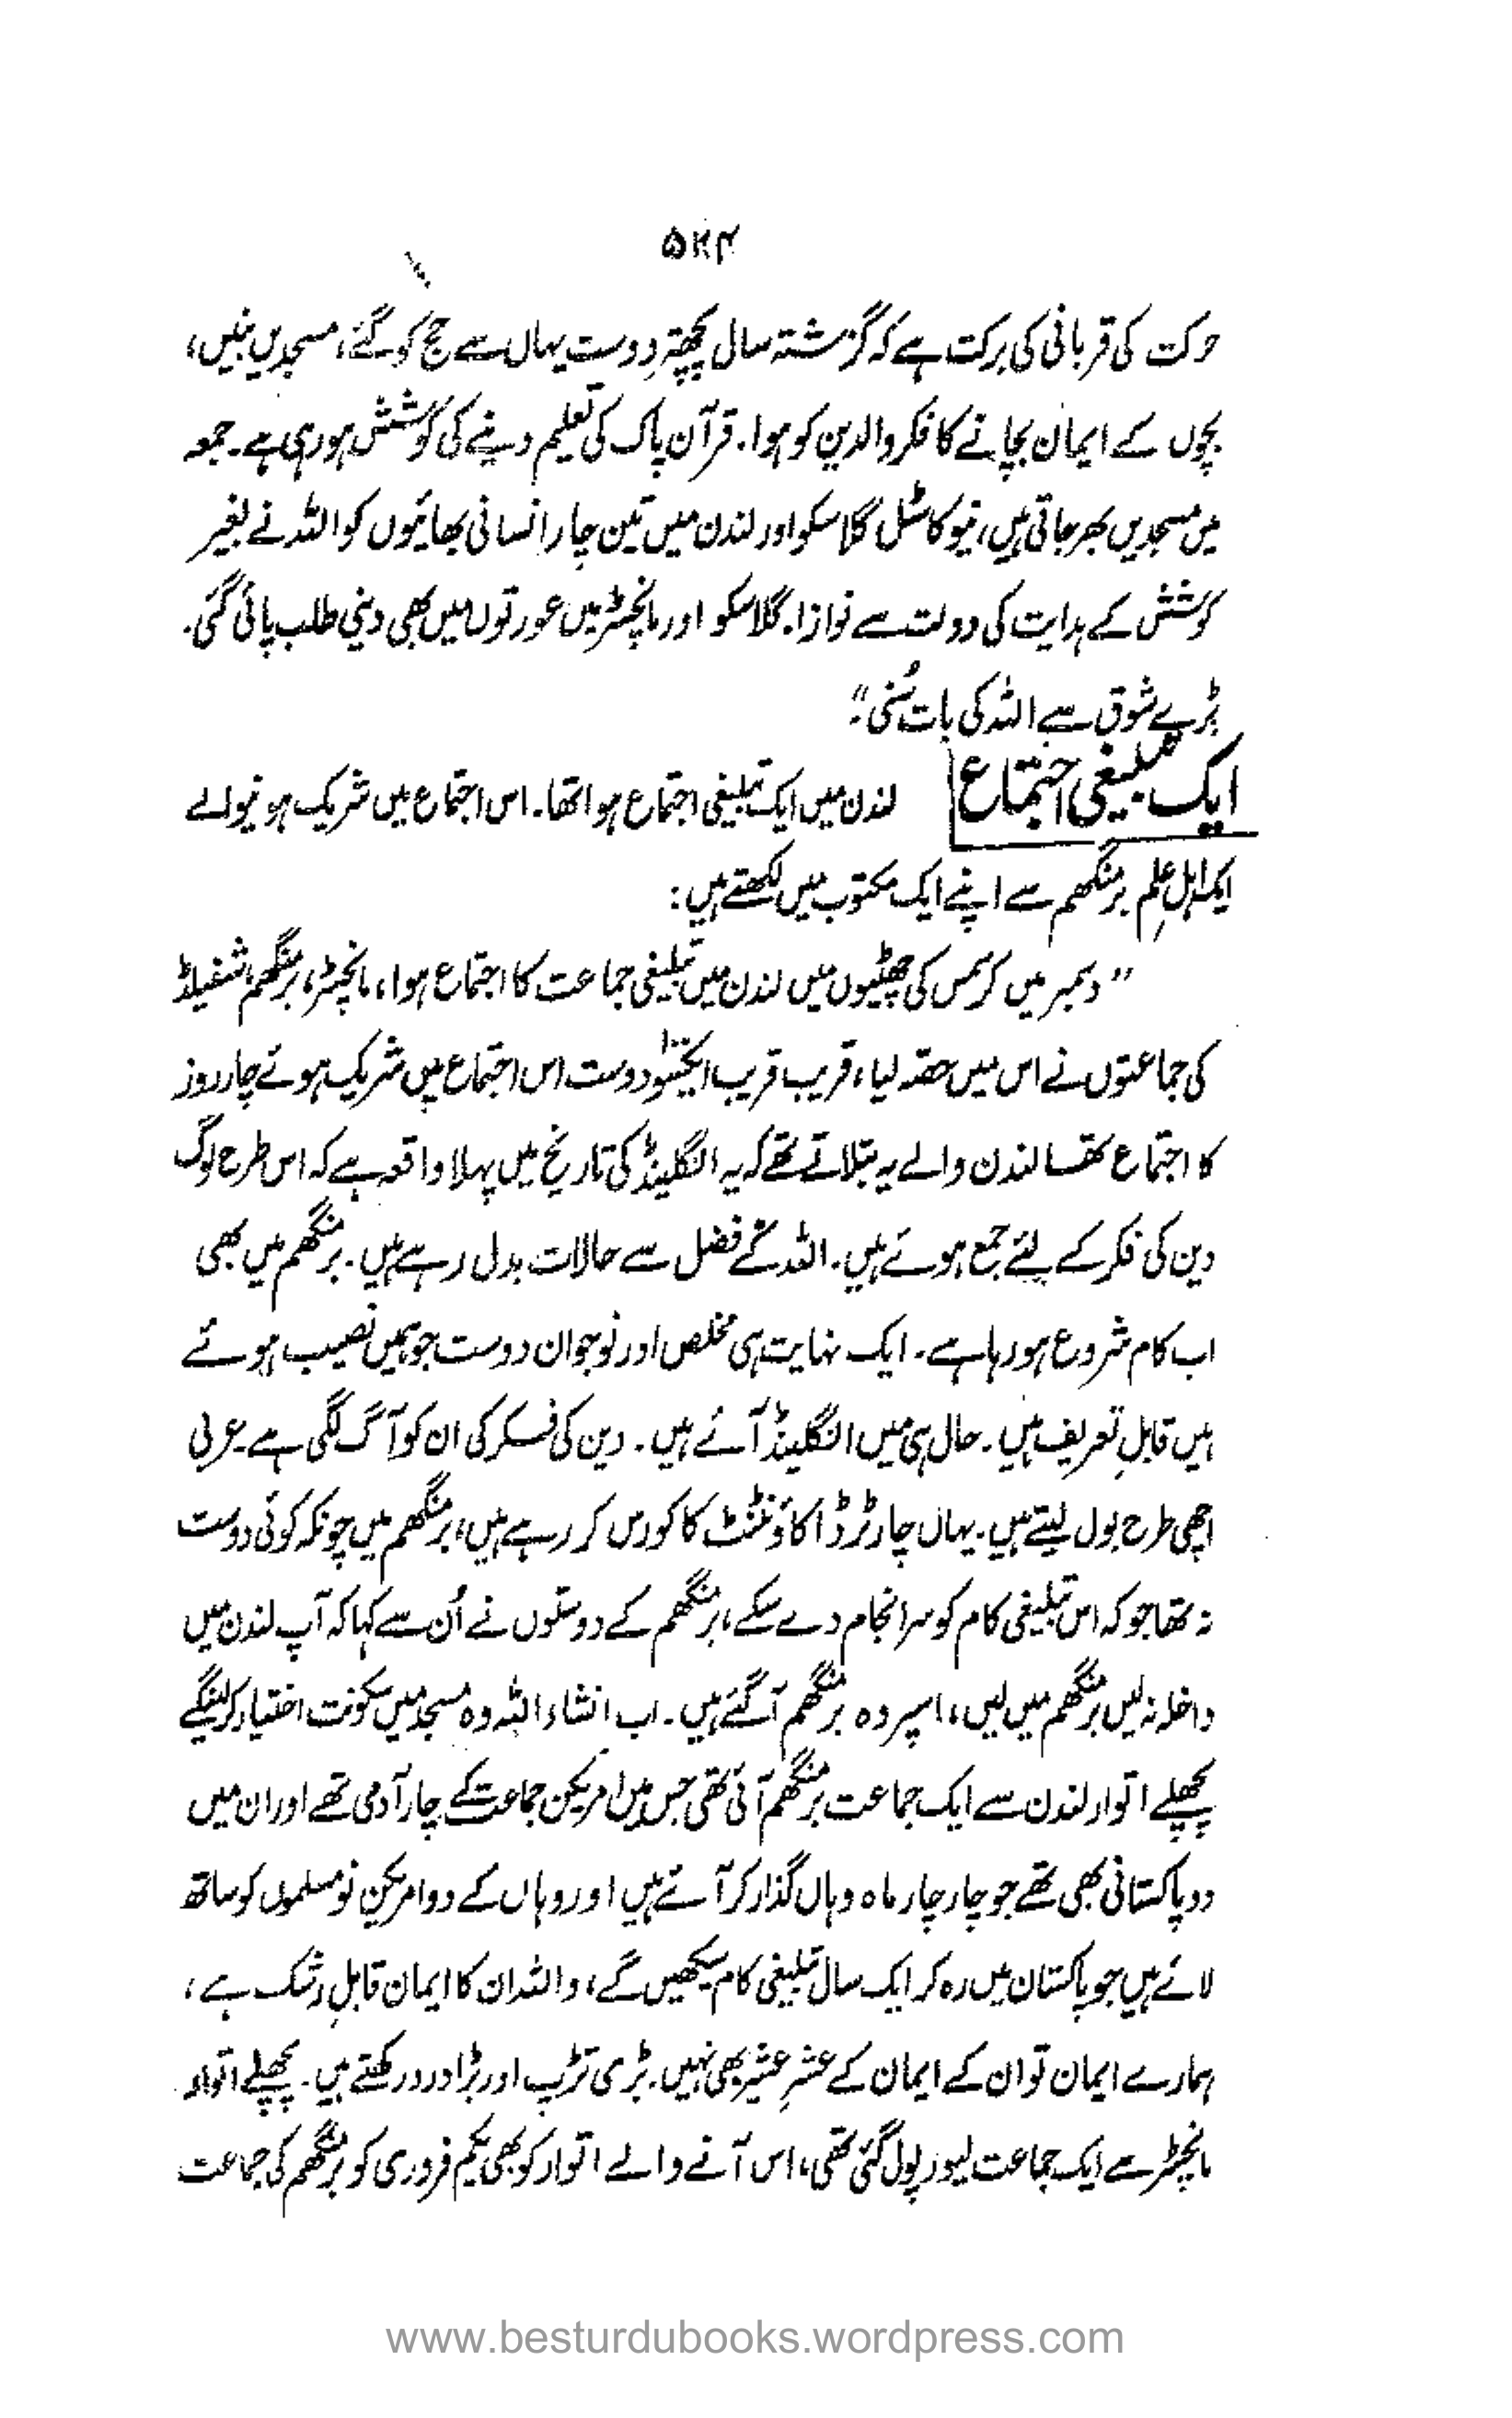 ۵۲۴
حرکت کی قربانی کی برکت ہے کہ گزشتہ سال پچھتر دوست یہاں سے حج کو گئے، مسجدیں بنیں،
بچوں کے ایمان بچانے کا فکر والدین کو ہوا۔ قرآن پاک کی تعلیم دینے کی کوشش ہو رہی ہے۔ جمعہ
میں مسجدیں بھر جاتی ہیں، نیوکاسل گلاسکو اور لندن میں تین چار انسانی بھائیوں کو اللہ نے بغیر
کوشش کے ہدایت کی دولت سے نوازا۔ گلاسکو اور مانچسٹر میں عورتوں میں بھی دینی طلب پائی گئی۔
بڑے شوق سے اللہ کی بات سُنی۔"
ایک تبلیغی اجتماع لندن میں ایک تبلیغی اجتماع ہوا تھا۔ اس اجتماع میں شریک ہونیوالے
ایک اہلِ علم برمنگھم سے اپنے ایک مکتوب میں لکھتے ہیں:
"دسمبر میں کرسمس کی چھٹیوں میں لندن میں تبلیغی جماعت کا اجتماع ہوا، مانچسٹر، برمنگھم، شفیلڈ
کی جماعتوں نے اس میں حصّہ لیا، قریب قریب ایکسو دوست اس اجتماع میں شریک ہوئے چار روز
کا اجتماع تھا لندن والے یہ بتلاتے تھے کہ یہ انگلینڈ کی تاریخ میں پہلا واقعہ ہے کہ اس طرح لوگ
دین کی فکر کے لئے جمع ہوئے ہیں۔ اللہ کے فضل سے حالات بدل رہے ہیں۔ برمنگھم میں بھی
اب کام شروع ہو رہا ہے۔ ایک نہایت ہی مخلص اور نوجوان دوست جو ہمیں نصیب ہوئے
ہیں قابلِ تعریف ہیں۔ حال ہی میں انگلینڈ آئے ہیں۔ دین کی فکر کی ان کو آگ لگی ہے۔ عربی
اچھی طرح بول لیتے ہیں۔ یہاں چارٹرڈ اکاؤنٹنٹ کا کورس کر رہے ہیں، برمنگھم میں چونکہ کوئی دوست
نہ تھا جو کہ اس تبلیغی کام کو سرانجام دے سکے، برمنگھم کے دوستوں نے اُن سے کہا کہ آپ لندن میں
داخلہ نہ لیں برمنگھم میں لیں، اسپر وہ برمنگھم آگئے ہیں۔ اب انشاء اللہ وہ مسجد میں سکونت اختیار کرلینگے
پچھلے اتوار لندن سے ایک جماعت برمنگھم آئی تھی جس میں امریکن جماعت کے چار آدمی تھے اور ان میں
دو پاکستانی بھی تھے جو چار چار ماہ وہاں گذار کر آتے ہیں اور وہاں کے دو امریکن نومسلموں کو ساتھ
لائے ہیں جو پاکستان میں رہ کر ایک سال تبلیغی کام سیکھیں گے، واللہ ان کا ایمان قابلِ رشک ہے،
ہمارے ایمان تو ان کے ایمان کے عشرِ عشیر بھی نہیں۔ بڑی تڑپ اور بڑا درد رکھتے ہیں۔ پچھلے اتوار
مانچسٹر سے ایک جماعت لیورپول گئی تھی، اس آنے والے اتوار کو بھی یکم فروری کو برمنگھم کی جماعت
www.besturdubooks.wordpress.com